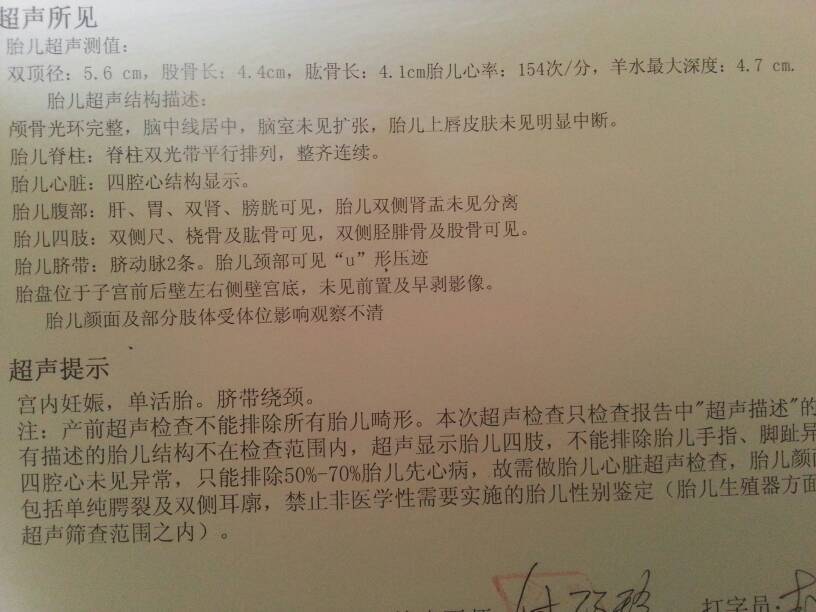 超声所见
胎儿超声测值:
双顶径: 5.6 cm, 股骨长: 4.4cm, 肱骨长: 4.1cm胎儿心率: 154次/分, 羊水最大深度: 4.7 cm.
胎儿超声结构描述:
颅骨光环完整, 脑中线居中, 脑室未见扩张, 胎儿上唇皮肤未见明显中断。
胎儿脊柱: 脊柱双光带平行排列, 整齐连续。
胎儿心脏: 四腔心结构显示。
胎儿腹部: 肝、胃、双肾、膀胱可见, 胎儿双侧肾盂未见分离
胎儿四肢: 双侧尺、桡骨及肱骨可见, 双侧胫腓骨及股骨可见。
胎儿脐带: 脐动脉2条。胎儿颈部可见“u”形压迹
胎盘位于子宫前后壁左右侧壁宫底, 未见前置及早剥影像。
胎儿颜面及部分肢体受体位影响观察不清
超声提示
宫内妊娠, 单活胎。脐带绕颈。
注: 产前超声检查不能排除所有胎儿畸形。本次超声检查只检查报告中"超声描述"的
有描述的胎儿结构不在检查范围内, 超声显示胎儿四肢, 不能排除胎儿手指、脚趾异
四腔心未见异常, 只能排除50%-70%胎儿先心病, 故需做胎儿心脏超声检查, 胎儿颜面
包括单纯腭裂及双侧耳廓, 禁止非医学性需要实施的胎儿性别鉴定 (胎儿生殖器方面
超声筛查范围之内) 。
打字员: